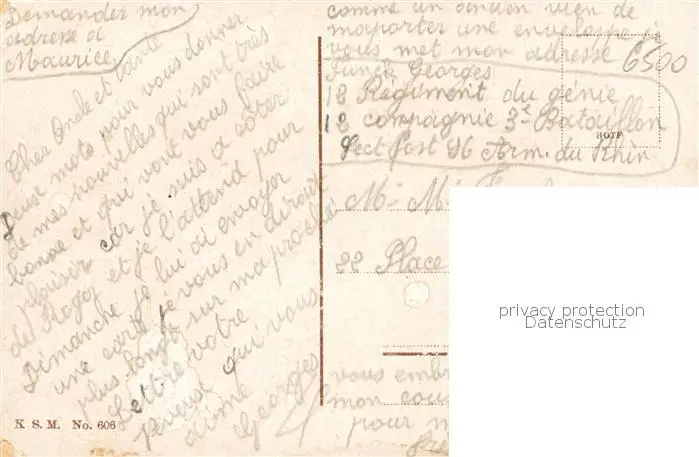 Demander mon
adresse a
Maurice
Cher Oncle et tante
Deux mots pour vous donner
de mes nouvelles qui sont très
bonne et qui vont vous faire
plaisir car je suis a coter
de Roger et je l'attend pour
Dimanche je lui ai envoyer
une carte je vous en dirait
plus long sur ma prochaine
Lettre votre
neveux qui vous
aime
Georges
K. S. M. No. 606
comme un ancien vien de
m'aporter une envelope je
vous met mon adresse
Funck Georges
18 Regiment du génie
12 compagnie 3e Bataillon
Sect Post 96 Arm. du Rhin
6500
22 Place
vous emb
mon cous
pour m
privacy protection
Datenschutz